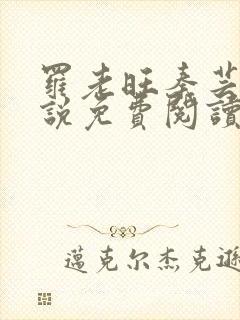 羅老旺秦芸
說免費閱讀
邁克尔杰克遜